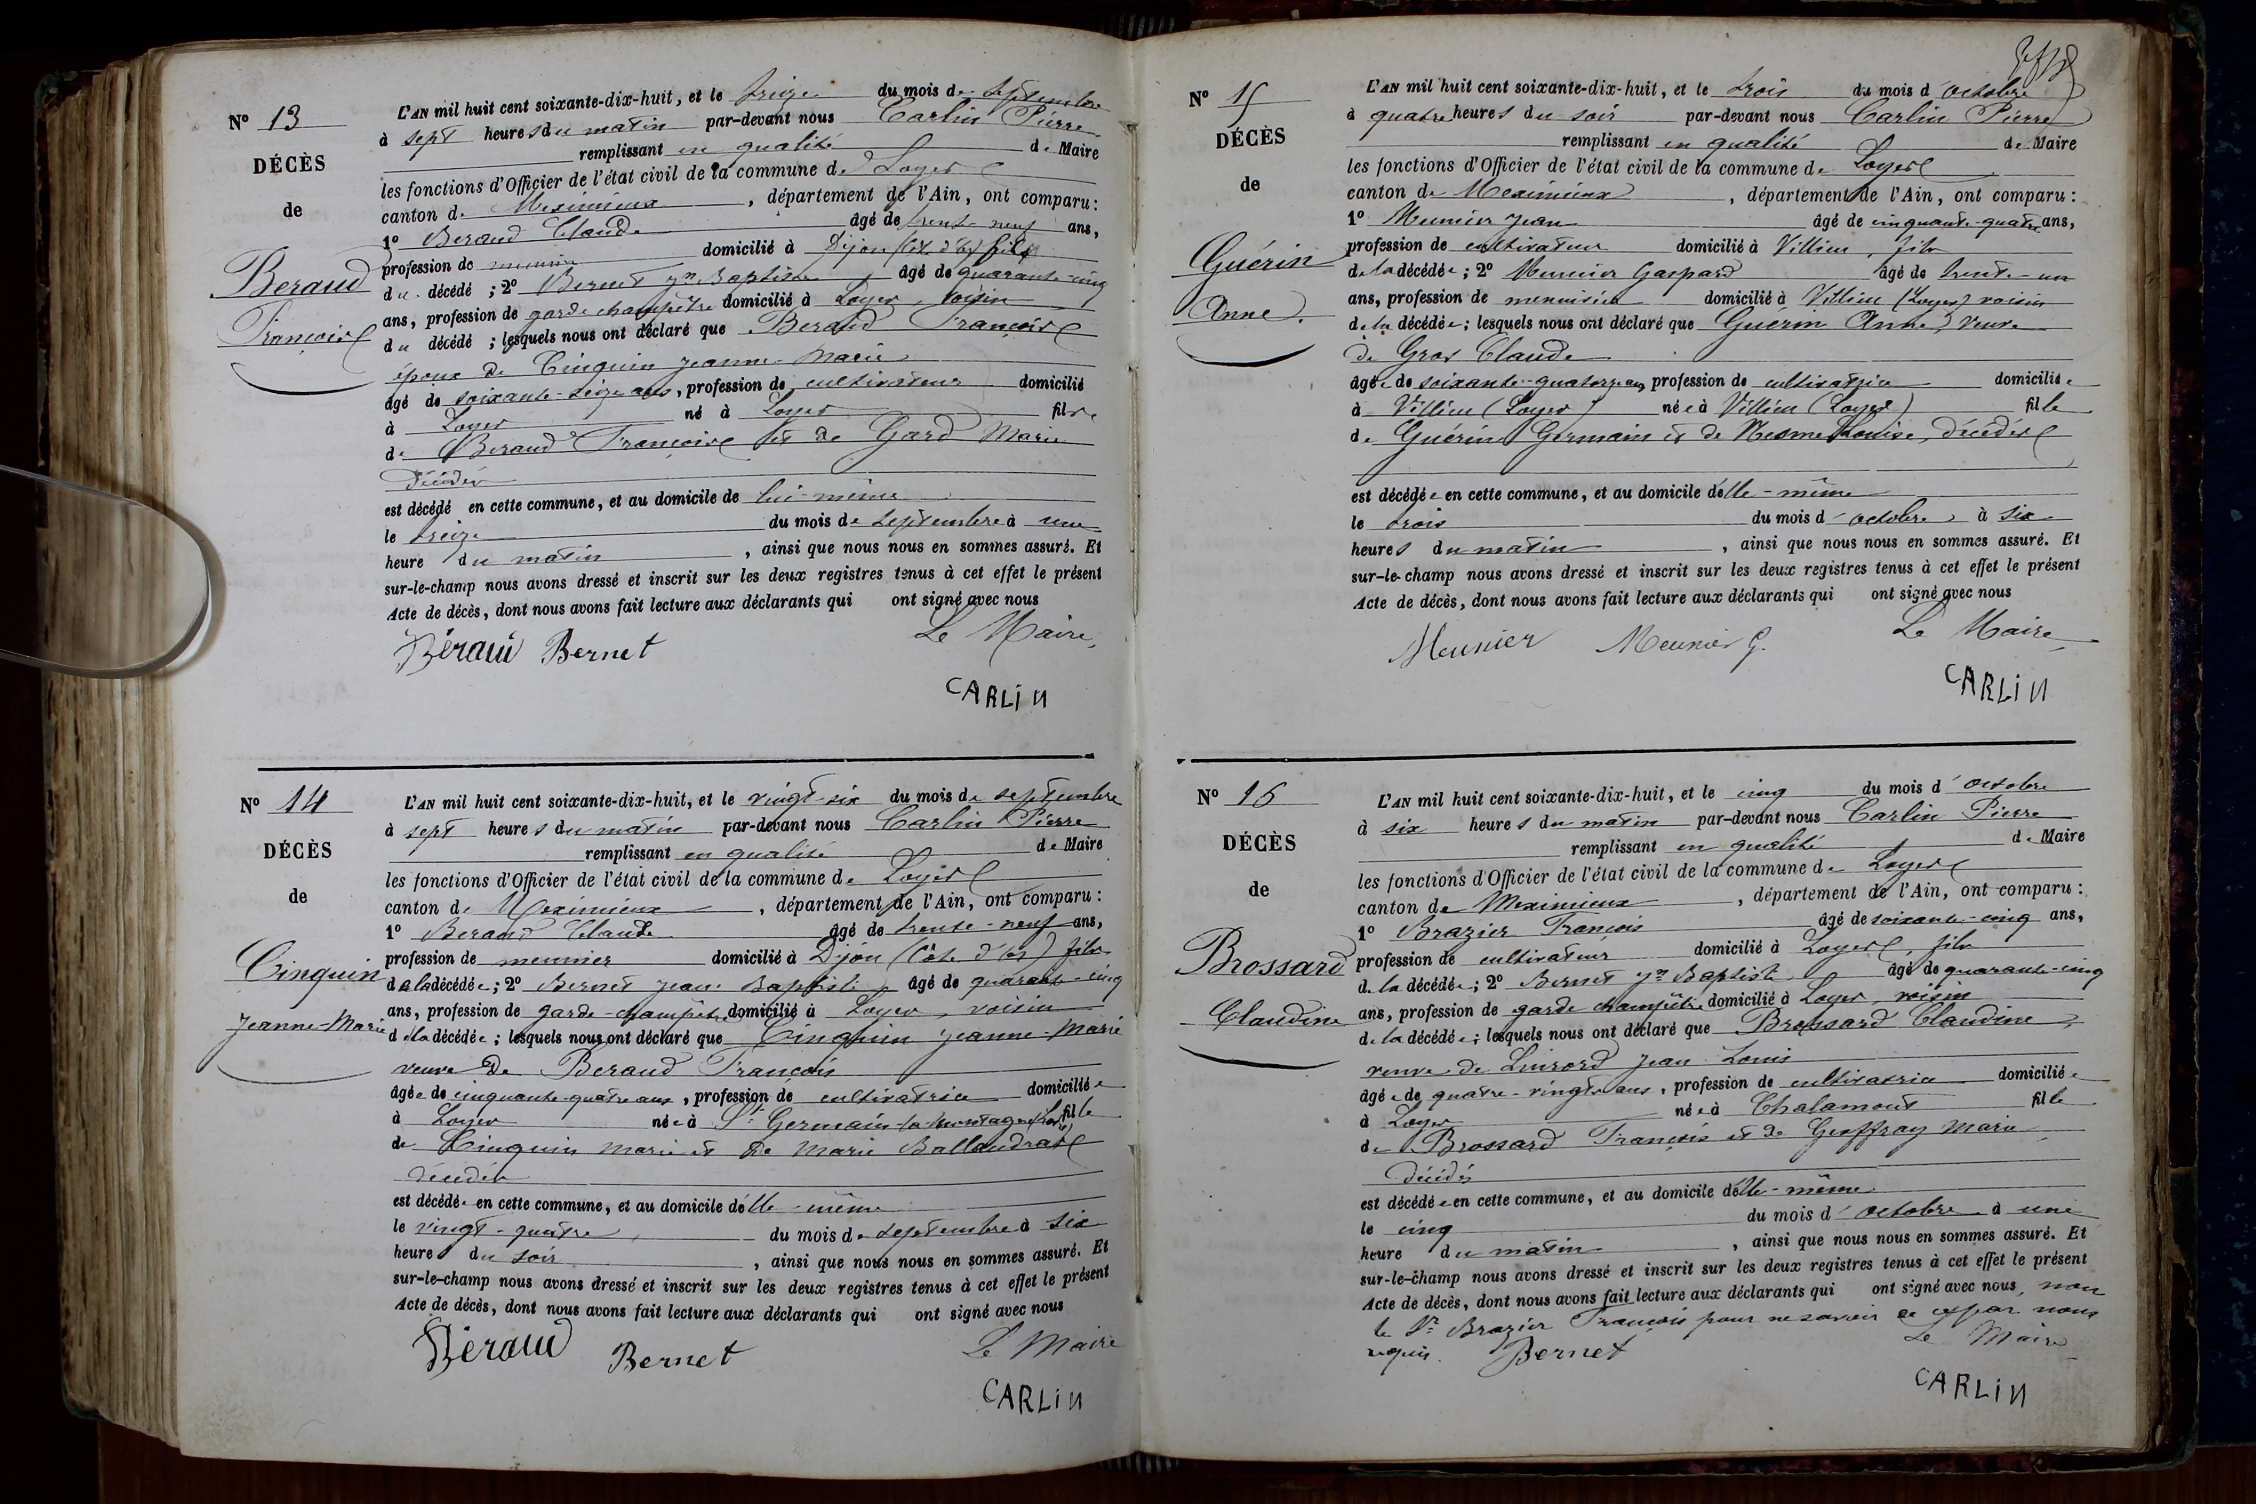 N° 13
DÉCÈS
de
Beraud
François
L'AN mil huit cent soixante-dix-huit, et le treize du mois de septembre
à sept heures du matin par-devant nous Carlin Pierre
remplissant en qualité de Maire
les fonctions d'Officier de l'état civil de la commune de Loyes
canton de Meximieux, département de l'Ain, ont comparu :
1° Beraud Claude âgé de trente-neuf ans,
profession de meunier domicilié à Dijon (Côte d'Or) fils
du décédé ; 2° Bernet Jn Baptiste, âgé de quarante-cinq
ans, profession de garde champêtre domicilié à Loyes, voisin
du décédé ; lesquels nous ont déclaré que Beraud François
époux de Cinquin Jeanne-Marie
âgé de soixante-seize ans, profession de cultivateur domicilié
à Loyes né à Loyes fils
de Beraud François et de Gard Marie
décédés
est décédé en cette commune, et au domicile de lui-même
le treize du mois de septembre à une
heure du matin, ainsi que nous nous en sommes assuré. Et
sur-le-champ nous avons dressé et inscrit sur les deux registres tenus à cet effet le présent
Acte de décès, dont nous avons fait lecture aux déclarants qui ont signé avec nous
Le Maire,
Béraud Bernet
CARLIN
N° 14
DÉCÈS
de
Cinquin
Jeanne-Marie
L'AN mil huit cent soixante-dix-huit, et le vingt-six du mois de septembre
à sept heures du matin par-devant nous Carlin Pierre
remplissant en qualité de Maire
les fonctions d'Officier de l'état civil de la commune de Loyes
canton de Meximieux, département de l'Ain, ont comparu :
1° Beraud Claude âgé de trente-neuf ans,
profession de meunier domicilié à Dijon (Côte d'Or) fils
de la décédée ; 2° Bernet Jean Baptiste, âgé de quarante-cinq
ans, profession de garde-champêtre domicilié à Loyes, voisin
de la décédée ; lesquels nous ont déclaré que Cinquin Jeanne-Marie
veuve de Beraud François
âgée de cinquante-quatre ans, profession de cultivatrice domiciliée
à Loyes née à St Germain-la-Montagne fille
de Cinquin Marie et de Marie Ballandras
décédés
est décédée en cette commune, et au domicile d'elle-même
le vingt-quatre du mois de septembre à six
heures du soir, ainsi que nous nous en sommes assuré. Et
sur-le-champ nous avons dressé et inscrit sur les deux registres tenus à cet effet le présent
Acte de décès, dont nous avons fait lecture aux déclarants qui ont signé avec nous
Le Maire
Béraud Bernet
CARLIN
N° 15
DÉCÈS
de
Guérin
Anne.
L'AN mil huit cent soixante-dix-huit, et le trois du mois d'octobre
à quatre heures du soir par-devant nous Carlin Pierre
remplissant en qualité de Maire
les fonctions d'Officier de l'état civil de la commune de Loyes
canton de Meximieux, département de l'Ain, ont comparu :
1° Meunier Jean âgé de cinquante-quatre ans,
profession de cultivateur domicilié à Villieu, fils
de la décédée ; 2° Meunier Gaspard âgé de trente-un
ans, profession de menuisier domicilié à Villieu (Loyes) voisin
de la décédée ; lesquels nous ont déclaré que Guérin Anne veuve
de Gros Claude
âgée de soixante-quatorze ans, profession de cultivatrice domiciliée
à Villieu (Loyes) née à Villieu (Loyes) fille
de Guérin Germain et de Mesme Louise, décédés
est décédée en cette commune, et au domicile d'elle-même
le trois du mois d'octobre à six
heures du matin, ainsi que nous nous en sommes assuré. Et
sur-le-champ nous avons dressé et inscrit sur les deux registres tenus à cet effet le présent
Acte de décès, dont nous avons fait lecture aux déclarants qui ont signé avec nous
Le Maire,
Meunier Meunier G.
CARLIN
N° 16
DÉCÈS
de
Brossard
Claudine
L'AN mil huit cent soixante-dix-huit, et le cinq du mois d'octobre
à six heures du matin par-devant nous Carlin Pierre
remplissant en qualité de Maire
les fonctions d'Officier de l'état civil de la commune de Loyes
canton de Meximieux, département de l'Ain, ont comparu :
1° Brazier François âgé de soixante-cinq ans,
profession de cultivateur domicilié à Loyes, fils
de la décédée ; 2° Bernet Jn Baptiste, âgé de quarante-cinq
ans, profession de garde champêtre domicilié à Loyes, voisin
de la décédée ; lesquels nous ont déclaré que Brossard Claudine,
veuve de Jean Louis
âgée de quatre-vingts ans, profession de cultivatrice domiciliée
à Loyes née à Chalamont fille
de Brossard François et de Geoffray Marie
décédés
est décédée en cette commune, et au domicile d'elle-même
le cinq du mois d'octobre à une
heure du matin, ainsi que nous nous en sommes assuré. Et
sur-le-champ nous avons dressé et inscrit sur les deux registres tenus à cet effet le présent
Acte de décès, dont nous avons fait lecture aux déclarants qui ont signé avec nous, non
le Sr Brazier François pour ne savoir de ce par nous
requis. Bernet Le Maire
CARLIN